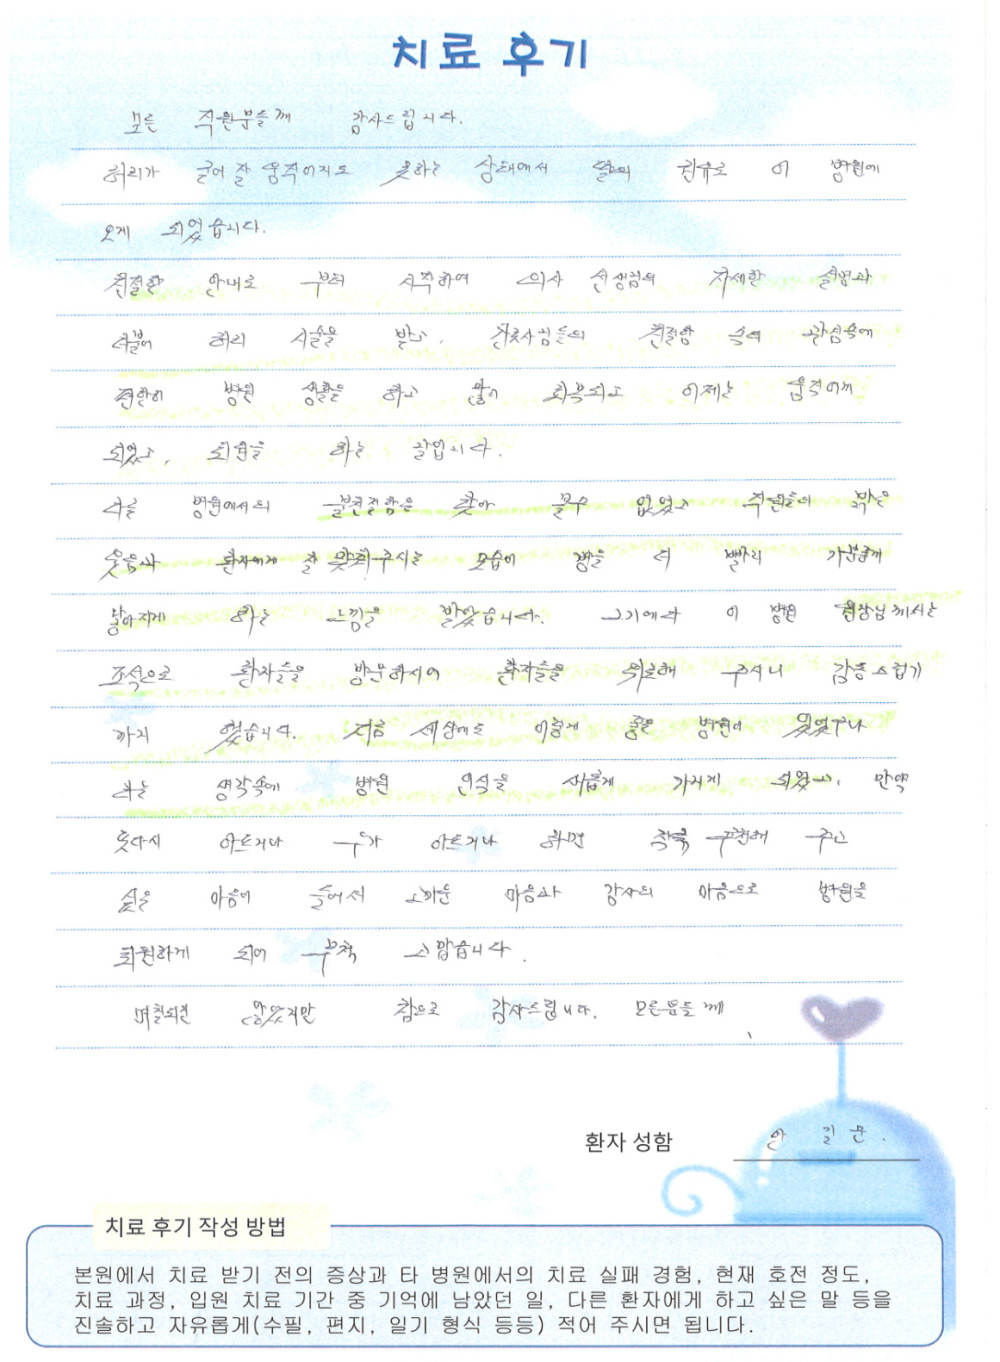 치료 후기
모든 직원분들께 감사드립니다.
허리가 굳어 잘 움직이지도 못하는 상태에서 딸의 권유로 이 병원에
오게 되었습니다.
친절한 안내로 부터 시작하여 의사 선생님의 자세한 설명과
더불어 허리 시술을 받고, 간호사님들의 친절함 속의 관심속에
편안히 병원 생활을 하고 많이 회복되고 이제는 움직이게
되었고, 퇴원을 하는 날입니다.
다른 병원에서의 불친절함을 찾아 볼수 없었고 직원들의 밝은
웃음과 환자에게 잘 맞춰주시는 모습이 병을 더 빨리 가분하게
낳아지게 하는 느낌을 받았습니다. 그기에다 이 병원 원장님께서는
조석으로 환자들을 방문하시어 환자들을 위로해 주시니 감동스럽기
까지 했습니다. 지금 세상에도 이렇게 좋은 병원이 있었구나
하는 생각속에 병원 인식을 새롭게 가지게 되었고, 만약
또다시 아프거나 누가 아프거나 하면 적극 추천해 주고
싶은 마음이 들어서 고마운 마음과 감사의 마음으로 병원을
퇴원하게 되어 무척 고맙습니다.
며칠되진 않았지만 참으로 감사드립니다. 모든분들께
환자 성함 안 길 문.
치료 후기 작성 방법
본원에서 치료 받기 전의 증상과 타 병원에서의 치료 실패 경험, 현재 호전 정도,
치료 과정, 입원 치료 기간 중 기억에 남았던 일, 다른 환자에게 하고 싶은 말 등을
진솔하고 자유롭게(수필, 편지, 일기 형식 등등) 적어 주시면 됩니다.